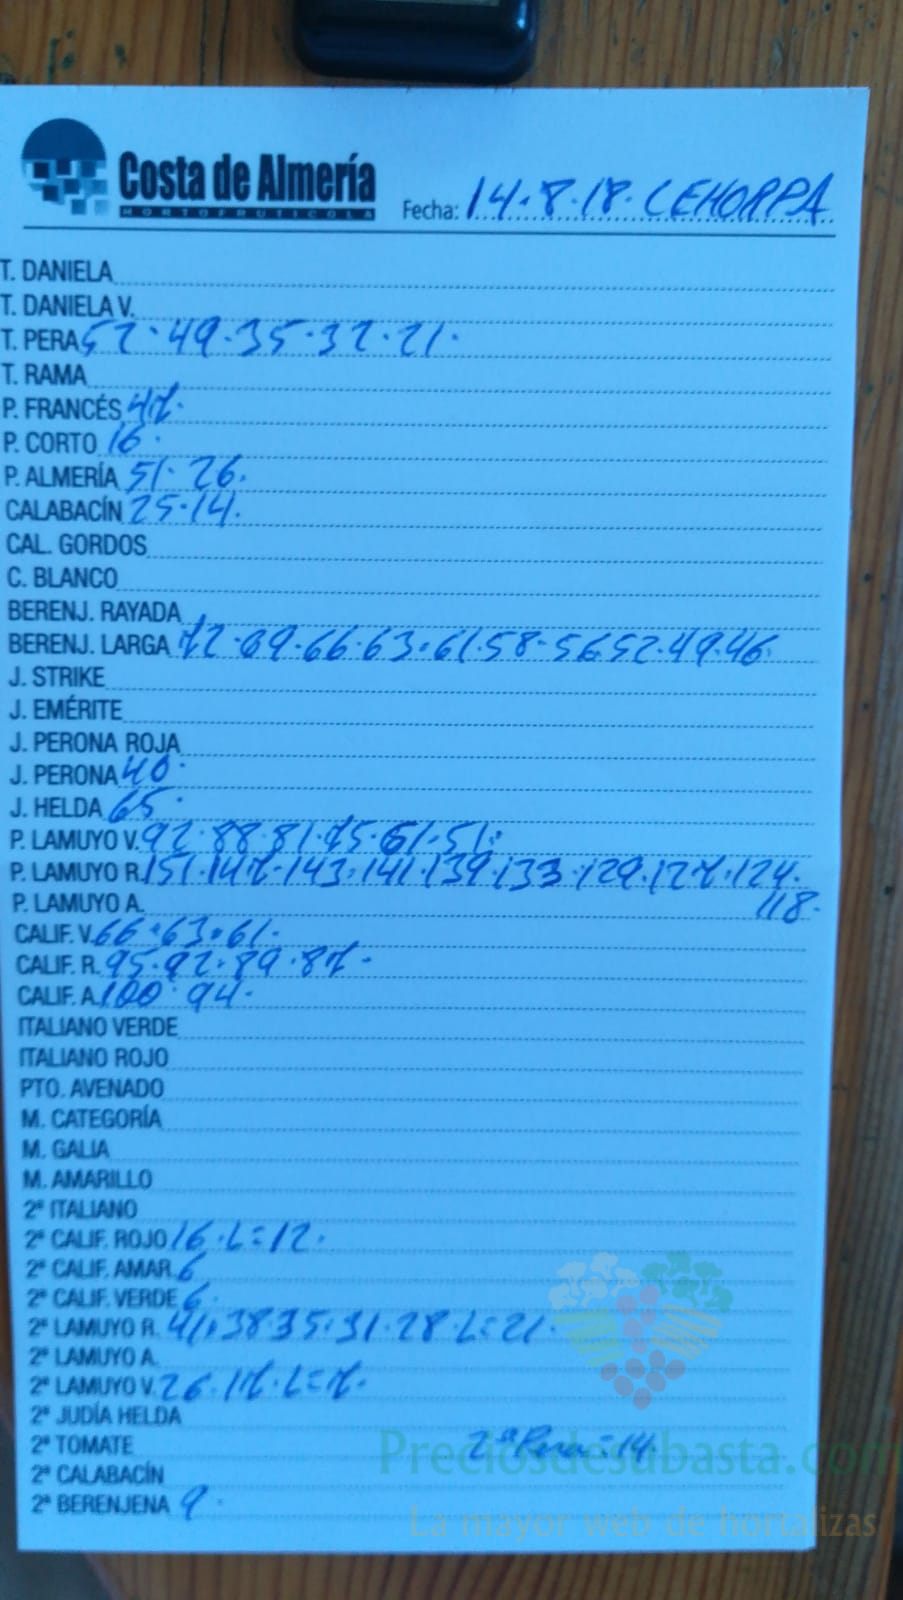 Costa de Almería
HORTOFRUTICOLA
Fecha: 14.8.18. CEHORPA
T. DANIELA
T. DANIELA V.
T. PERA 52.49.35.32.21.
T. RAMA
P. FRANCÉS 47.
P. CORTO 16.
P. ALMERÍA 51.26.
CALABACÍN 25.14.
CAL. GORDOS
C. BLANCO
BERENJ. RAYADA
BERENJ. LARGA 72.69.66.63.61.58.56.52.49.46.
J. STRIKE
J. EMÉRITE
J. PERONA ROJA
J. PERONA 40.
J. HELDA 65.
P. LAMUYO V. 92.88.81.75.61.51.
P. LAMUYO R. 151.147.143.141.139.133.129.127.124.
P. LAMUYO A. 118.
CALIF. V. 66.63.61.
CALIF. R. 95.92.89.87.
CALIF. A. 100.94.
ITALIANO VERDE
ITALIANO ROJO
PTO. AVENADO
M. CATEGORÍA
M. GALIA
M. AMARILLO
2ª ITALIANO
2ª CALIF. ROJO 16.L=12.
2ª CALIF. AMAR. 6
2ª CALIF. VERDE 6.
2ª LAMUYO R. 41.38.35.31.28.L=21.
2ª LAMUYO A.
2ª LAMUYO V. 26.17.L=7.
2ª JUDÍA HELDA
2ª TOMATE 2ª Pera=14.
2ª CALABACÍN
2ª BERENJENA 9.
Preciosdesubasta.com
La mayor web de hortalizas